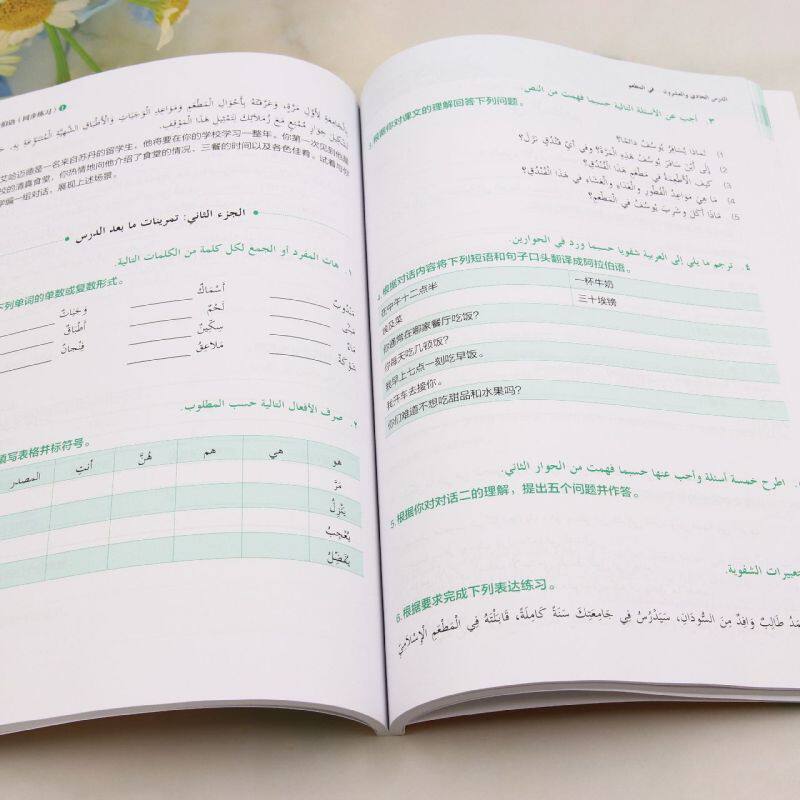 伯语（同步练习）1
الجامعة لأول مرة، وعرفته بأحوال المطعم ومواعيد الوجبات والأطباق الشهية المتنوعة به.
لتشكيل حوار ممتع مع زملائك لتمثيل هذا الموقف.
艾哈迈德是一名来自苏丹的留学生，他将要在你的学校学习一整年。你第一次见到他是
校的清真食堂，你热情地向他介绍了食堂的情况、三餐的时间以及各色佳肴。试着与你
学编一组对话，展现上述场景。
الجزء الثاني: تمرينات ما بعد الدرس
١. هات المفرد أو الجمع لكل كلمة من الكلمات التالية.
下列单词的单数或复数形式。
مَنْدُوبٌ أَسْمَاكٌ وَجَبَاتٌ
لَحْمٌ أَطْبَاقٌ
سِكِّينٌ فِنْجَانٌ
شَوْكَةٌ مَلَاعِقُ
٢. صرف الأفعال التالية حسب المطلوب.
填写表格并标符号。
هو هي هم هُنَّ أنتِ المصدر
مَرَّ
يَنْزِلُ
يُعْجِبُ
يُفَضِّلُ
الدرس الحادي والعشرون في المطعم
٣. أجب عن الأسئلة التالية حسبما فهمت من النص.
3. 根据你对课文的理解回答下列问题。
1) لِمَاذَا يُسَافِرُ يُوسُفُ دَائِمًا؟
2) إِلَى أَيْنَ سَافَرَ يُوسُفُ هَذِهِ الْمَرَّةَ؟ وفِي أَيِّ فُنْدُقٍ نَزَلَ؟
3) كَيْفَ الْأَطْعِمَةُ فِي مَطْعَمِ هَذَا الْفُنْدُقِ؟
4) مَا هِيَ مَوَاعِدُ الْفُطُورِ وَالْغَدَاءِ وَالْعَشَاءِ فِي هَذَا الْفُنْدُقِ؟
5) مَاذَا أَكَلَ وَشَرِبَ يُوسُفُ فِي الْمَطْعَمِ؟
٤. ترجم ما يلي إلى العربية شفويا حسبما ورد في الحوارين.
4. 根据对话内容将下列短语和句子口头翻译成阿拉伯语。
在中午十二点半 一杯牛奶
埃及菜 三十埃镑
你通常在哪家餐厅吃饭？
你每天吃几顿饭？
我早上七点一刻吃早饭。
我开车去接你。
你们难道不想吃甜品和水果吗？
. اطرح خمسة أسئلة وأجب عنها حسبما فهمت من الحوار الثاني.
5. 根据你对对话二的理解，提出五个问题并作答。
تعبيرات الشفوية.
6. 根据要求完成下列表达练习。
طَالِبٌ وَافِدٌ مِنَ السُّودَانِ، سَيَدْرُسُ فِي جَامِعَتِكَ سَنَةً كَامِلَةً، قَابَلْتَهُ فِي الْمَطْعَمِ الْإِسْلَامِيِّ